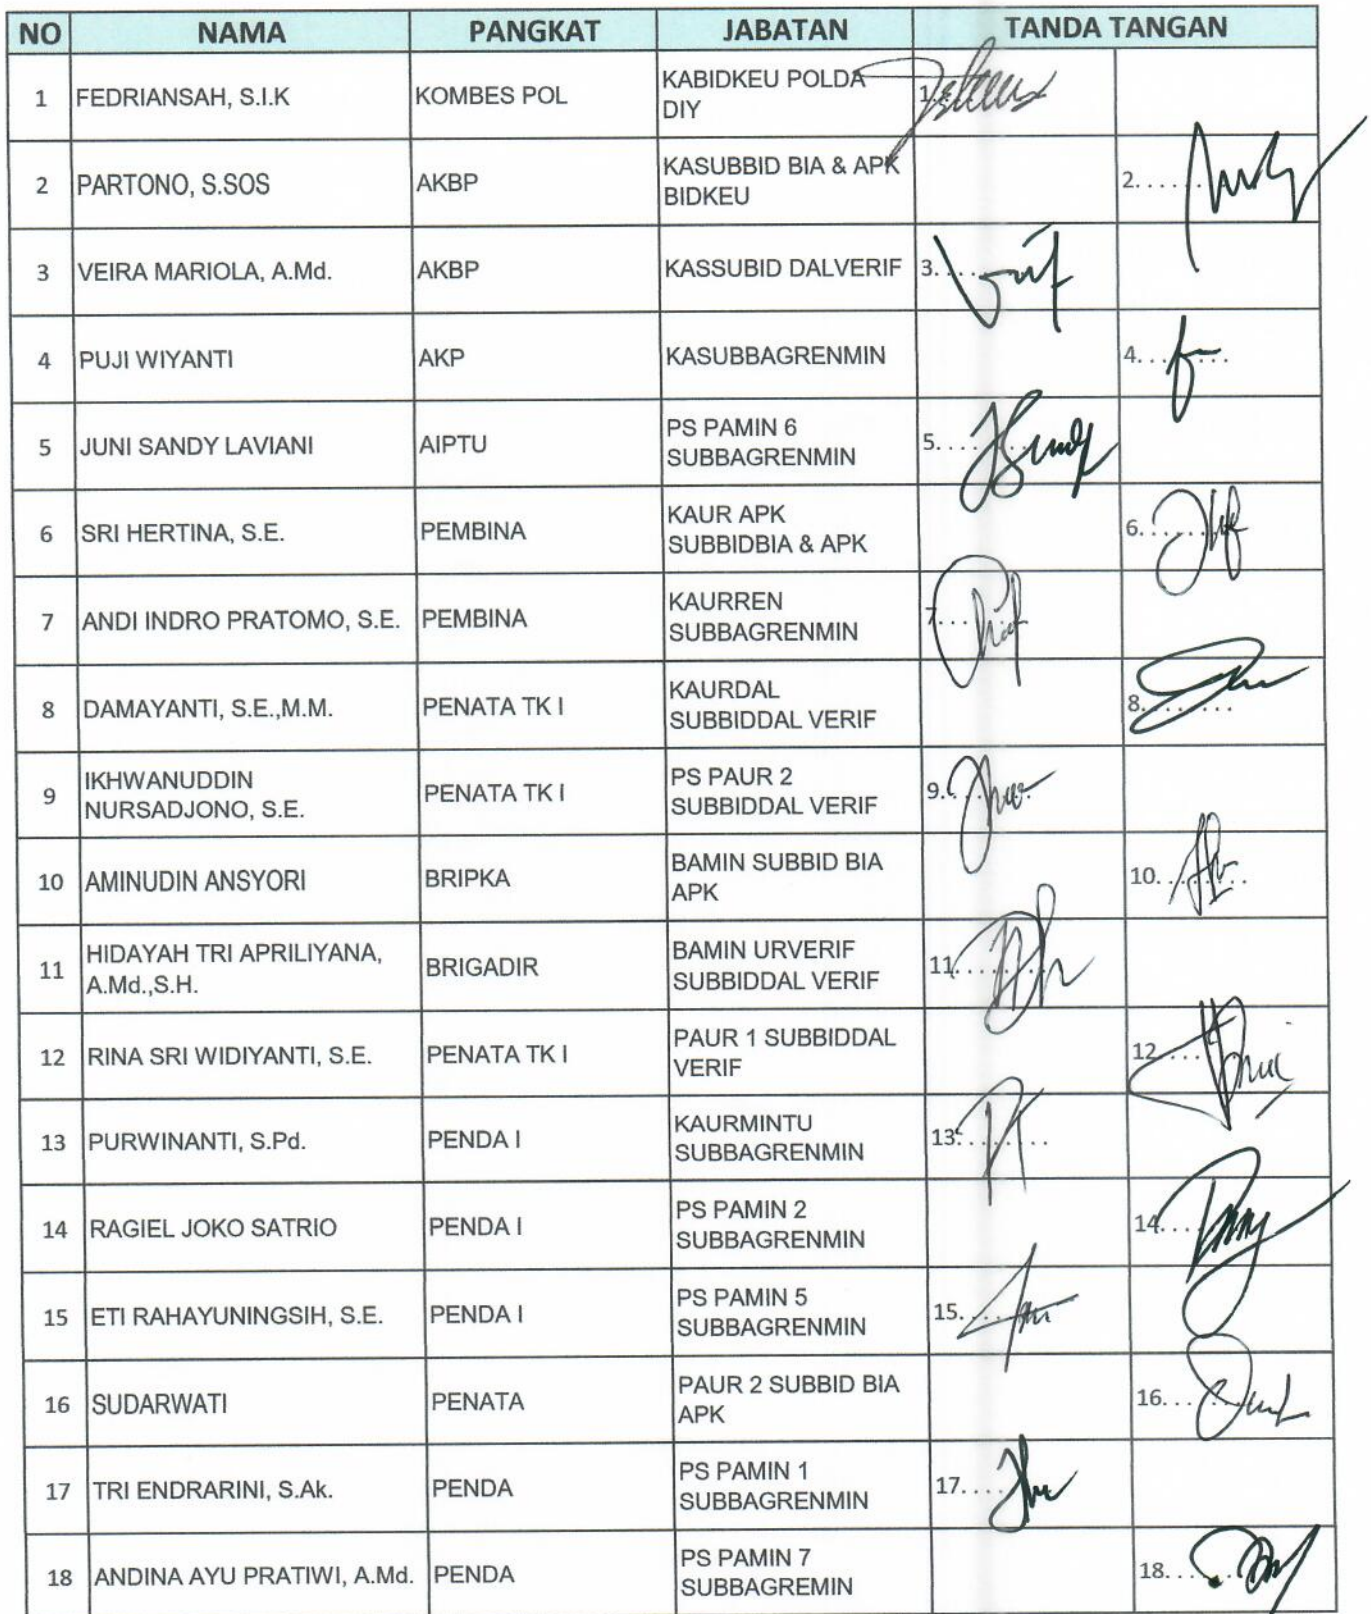 NO NAMA PANGKAT JABATAN TANDA TANGAN
1 FEDRIANSAH, S.I.K KOMBES POL KABIDKEU POLDA DIY 1.
2 PARTONO, S.SOS AKBP KASUBBID BIA & APK BIDKEU 2......
3 VEIRA MARIOLA, A.Md. AKBP KASSUBID DALVERIF 3.
4 PUJI WIYANTI AKP KASUBBAGRENMIN 4.........
5 JUNI SANDY LAVIANI AIPTU PS PAMIN 6 SUBBAGRENMIN 5.....
6 SRI HERTINA, S.E. PEMBINA KAUR APK SUBBIDBIA & APK 6.....
7 ANDI INDRO PRATOMO, S.E. PEMBINA KAURREN SUBBAGRENMIN 7.....
8 DAMAYANTI, S.E.,M.M. PENATA TK I KAURDAL SUBBIDDAL VERIF 8.........
9 IKHWANUDDIN NURSADJONO, S.E. PENATA TK I PS PAUR 2 SUBBIDDAL VERIF 9.....
10 AMINUDIN ANSYORI BRIPKA BAMIN SUBBID BIA APK 10.........
11 HIDAYAH TRI APRILIYANA, A.Md.,S.H. BRIGADIR BAMIN URVERIF SUBBIDDAL VERIF 11.....
12 RINA SRI WIDIYANTI, S.E. PENATA TK I PAUR 1 SUBBIDDAL VERIF 12....
13 PURWINANTI, S.Pd. PENDA I KAURMINTU SUBBAGRENMIN 13.........
14 RAGIEL JOKO SATRIO PENDA I PS PAMIN 2 SUBBAGRENMIN 14....
15 ETI RAHAYUNINGSIH, S.E. PENDA I PS PAMIN 5 SUBBAGRENMIN 15....
16 SUDARWATI PENATA PAUR 2 SUBBID BIA APK 16....
17 TRI ENDRARINI, S.Ak. PENDA PS PAMIN 1 SUBBAGRENMIN 17....
18 ANDINA AYU PRATIWI, A.Md. PENDA PS PAMIN 7 SUBBAGREMIN 18....